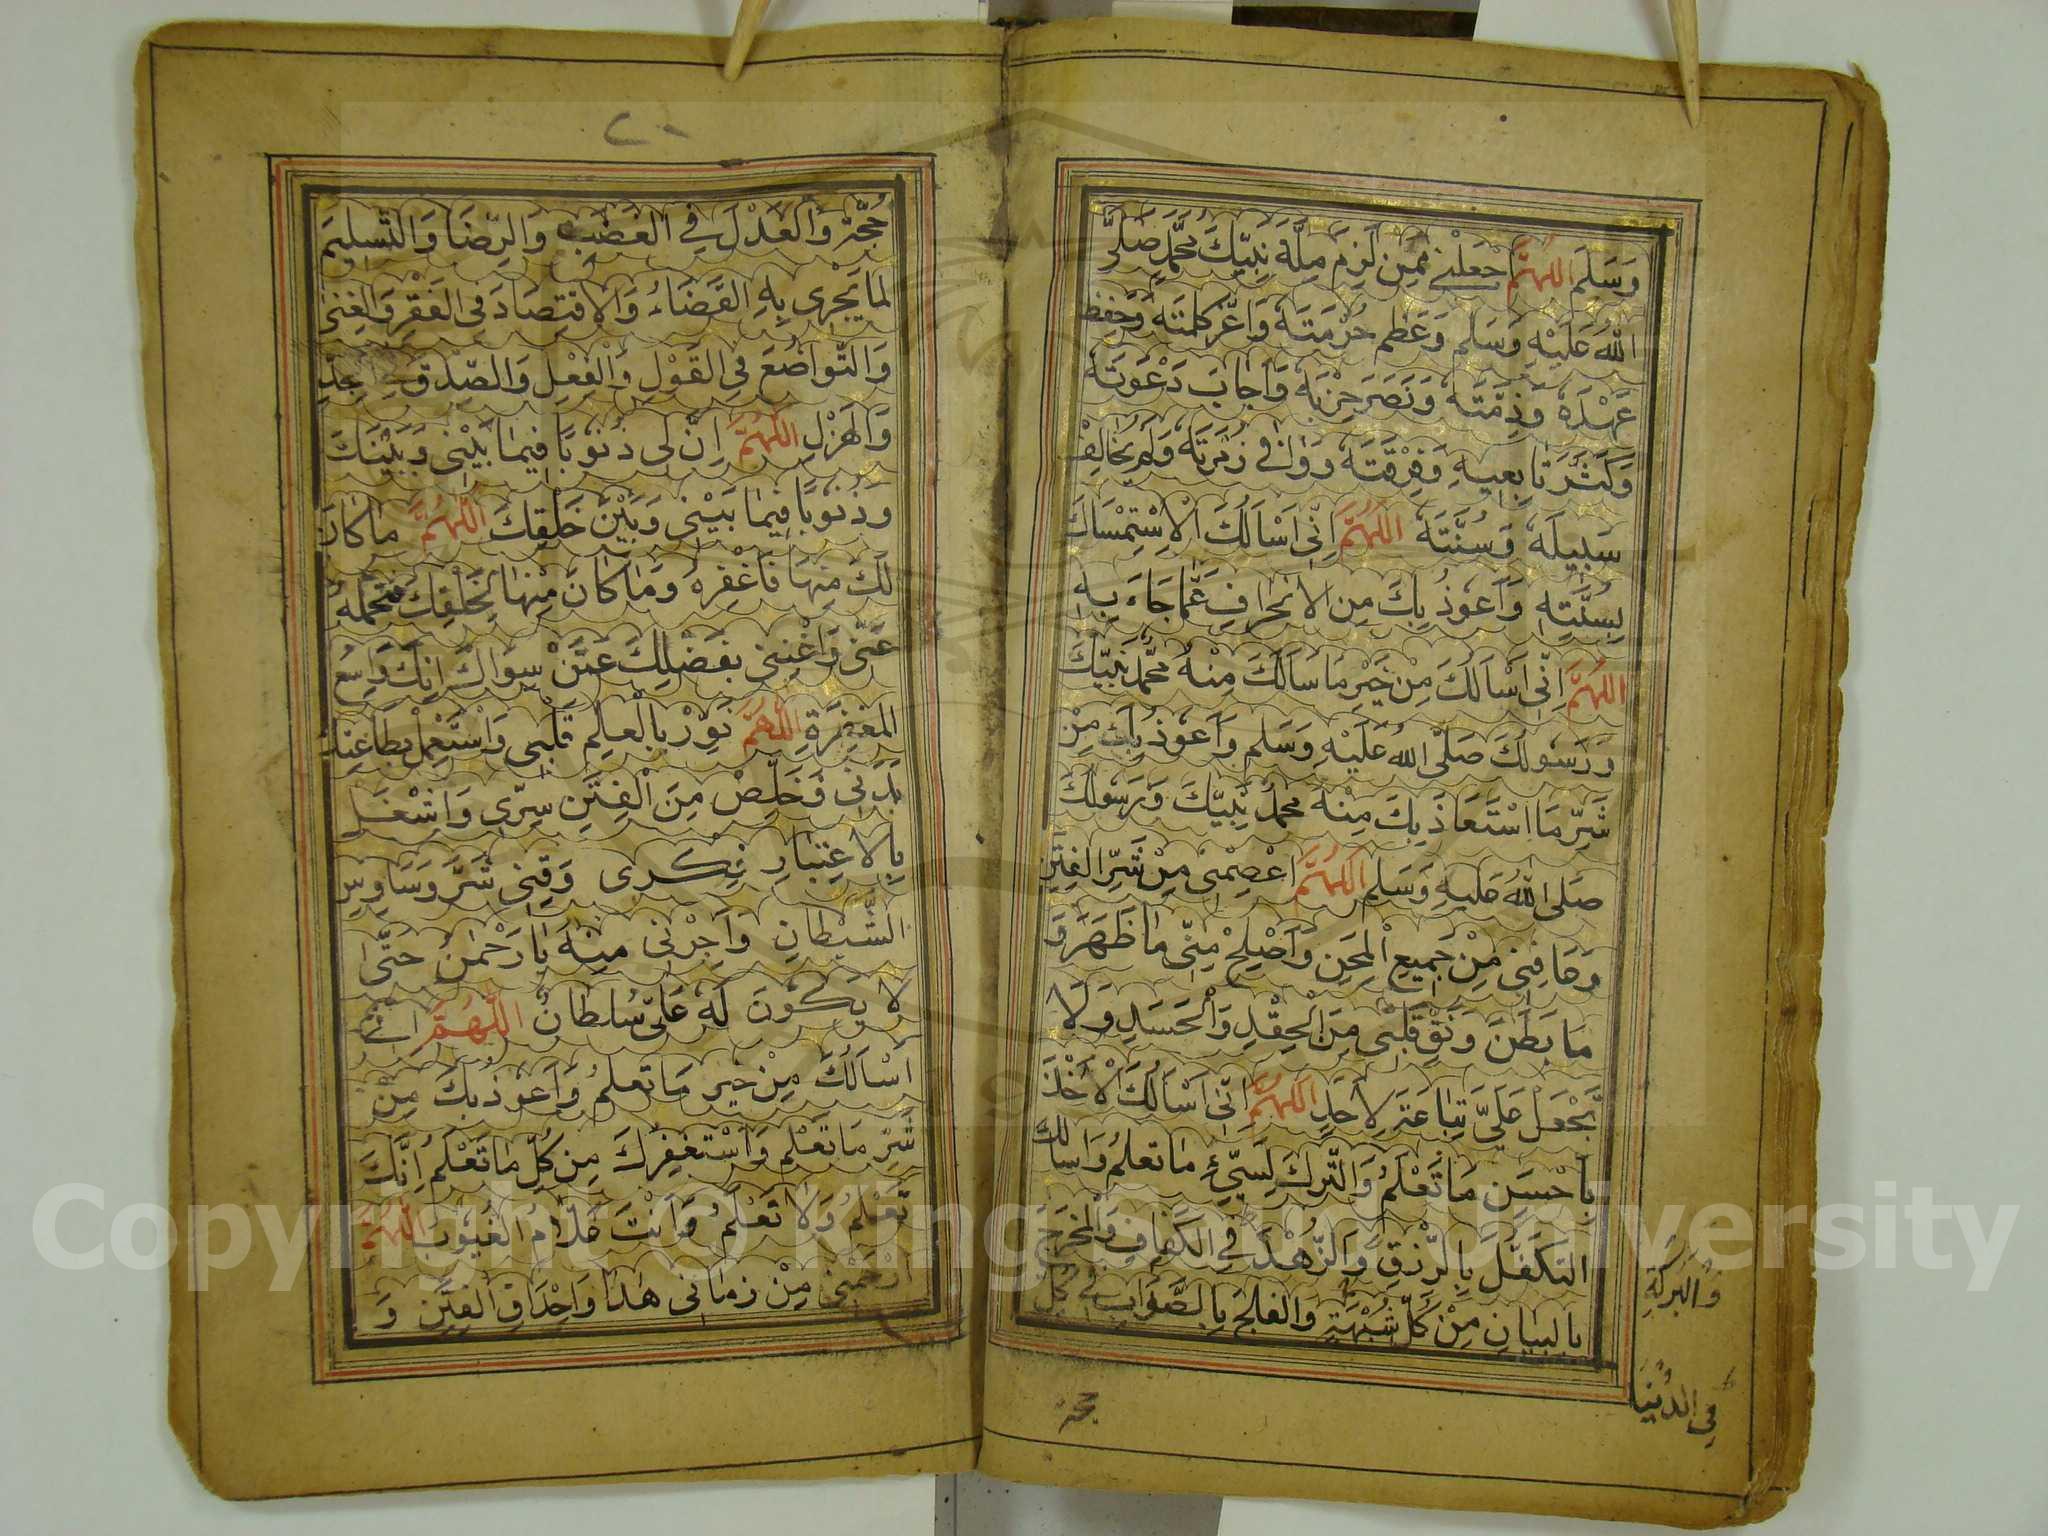 وَسَلَم اللَّهُمَّ اجْعَلْنِي مِمَّن لَزِمَ مِلَّةَ نَبِيِّكَ مُحَمَّدٍ صَلَّى
اللهُ عَلَيْهِ وَسَلم وَعَظم حُرْمَتَهُ وَاعَزّ كلمتَه وَحَفِظ
عَهْدَهُ وَذِمَّتَهُ وَنَصَرَ حِزْبَهُ وَاَجَابَ دَعْوَتَهُ
وَكَثَّرَ تَابِعِيهِ وَفِرْقَتَهُ وَوَافى زُمْرَتَهُ وَلَم يُخَالِفْ
سَبِيلَهُ وَسُنَّتَهُ اللّهُمَّ اِنّى اَسْاَلُكَ الْاِسْتِمْسَاكَ
بِسُنَّتِهِ وَاَعوُذ بِكَ مِن الانحِرافِ عَمَّا جَاءَ بِهِ
اللّهُمَّ اِنّى اَسْاَلُكَ مِنْ خَيْرِ مَا سَاَلَكَ مِنْهُ مُحَمَّد نَبِيّكَ
وَرَسوُلكَ صَلّى اللهُ عَلَيْهِ وَسَلم وَاَعوُذ بِكَ مِنْ
شَرِّ مَا اسْتَعَاذَ بِكَ مِنْه مُحمدٌ نَبِيّكَ وَرَسُولكَ
صَلى اللهُ عَليهِ وَسَلم اللّهُمَّ اعْصِمْنى مِنْ شَرِّ الفِتَنِ
وَعَافِنِى مِنْ جَمِيعِ الْمِحَنِ وَاَصْلِحْ مِنّى مَا ظَهَرَ وَ
مَا بَطَنَ وَنَقِّ قَلْبْى مِنَ الْحِقْدِ وَالْحَسَدِ وَلَا
تَجْعَلْ عَلَيَّ تِبَاعَةً لِاَحَدٍ اللّهُمَّ اِنّى اَسْاَلُكَ الْاَخْذَ
بِاَحْسَنِ مَا تَعْلَمُ وَالتّركَ لِسَيّئِ مَا تعلمُ وَاَسالك
التكَفّلَ بِالرّزقِ وَالزُّهْدَ فى الكَفَافِ وَالْمَخْرَجَ
بِالبيَانِ مِنْ كُلِّ شُبْهَةٍ وَالفلجَ بِالصَّوَابِ فى كل
وَالْبَركَةِ
في الدُّنْيَا
حجة
٢٠
حُجَّةٍ وَالعَدْلَ فِي الغَضَبِ وَالرِّضَا وَالتَّسليمَ
لما يَجْرِى بِهِ القَضَاءُ وَالاقتِصَادَ فى الفَقْرِ وَالغِنى
وَالتَّواضُعَ فِي القَوْلِ وَالْفِعْلِ وَالصِّدْقَ فِي الجِدّ
وَالهَزْلِ اللّهُمَّ اِنّ لى ذنوبًا فيمَا بَيْنى وَبَيْنَكَ
وَذُنوبًا فيمَا بَيْنى وَبَيْنَ خَلقِكَ اللّهُمَّ مَا كانَ
لَكَ مِنهَا فَاغْفِرهُ وَمَا كَانَ مِنْهَا لِخَلْقِكَ فتحملهُ
عَنّى وَاَغْنِنِى بفَضْلِكَ عَمَّنْ سِوَاكَ اِنكَ وَاسِعُ
المَغفِرَةِ اللّهُمَّ نَوِّرْ بِالْعِلِم قَلْبى وَاسْتَعْمِلْ بِطَاعَتِكَ
بَدَنى وَخَلِّصْ مِنَ الْفِتَنِ سِرّى وَاشْغَلْ
بِالاعِتبَارِ فِكْرى وَقِنى شَرَّ وَسَاوِسِ
الشَّيْطَانِ وَاَجِرْنى مِنهُ يَا رَحْمٰنُ حَتّى
لا يَكُونَ لَهُ عَلىّ سُلطانٌ اللّهُمَّ انّى
اَسْاَلُكَ مِنْ خَير مَا تعلمُ وَاَعوُذ بكَ مِنْ
شَرِّ مَا تَعْلم وَاَسْتغفِرُكَ مِن كُلّ مَا تَعْلمُ اِنَّكَ
تَعْلمُ وَلَا نَعْلَمُ وَاَنْتَ عَلّامُ الغُيُوبِ اللّهُمَّ
ارحَمْنى مِنْ زمَانى هٰذَا وَاِحْدَاقِ الفِتَنِ وَ
Copyright © King Saud University